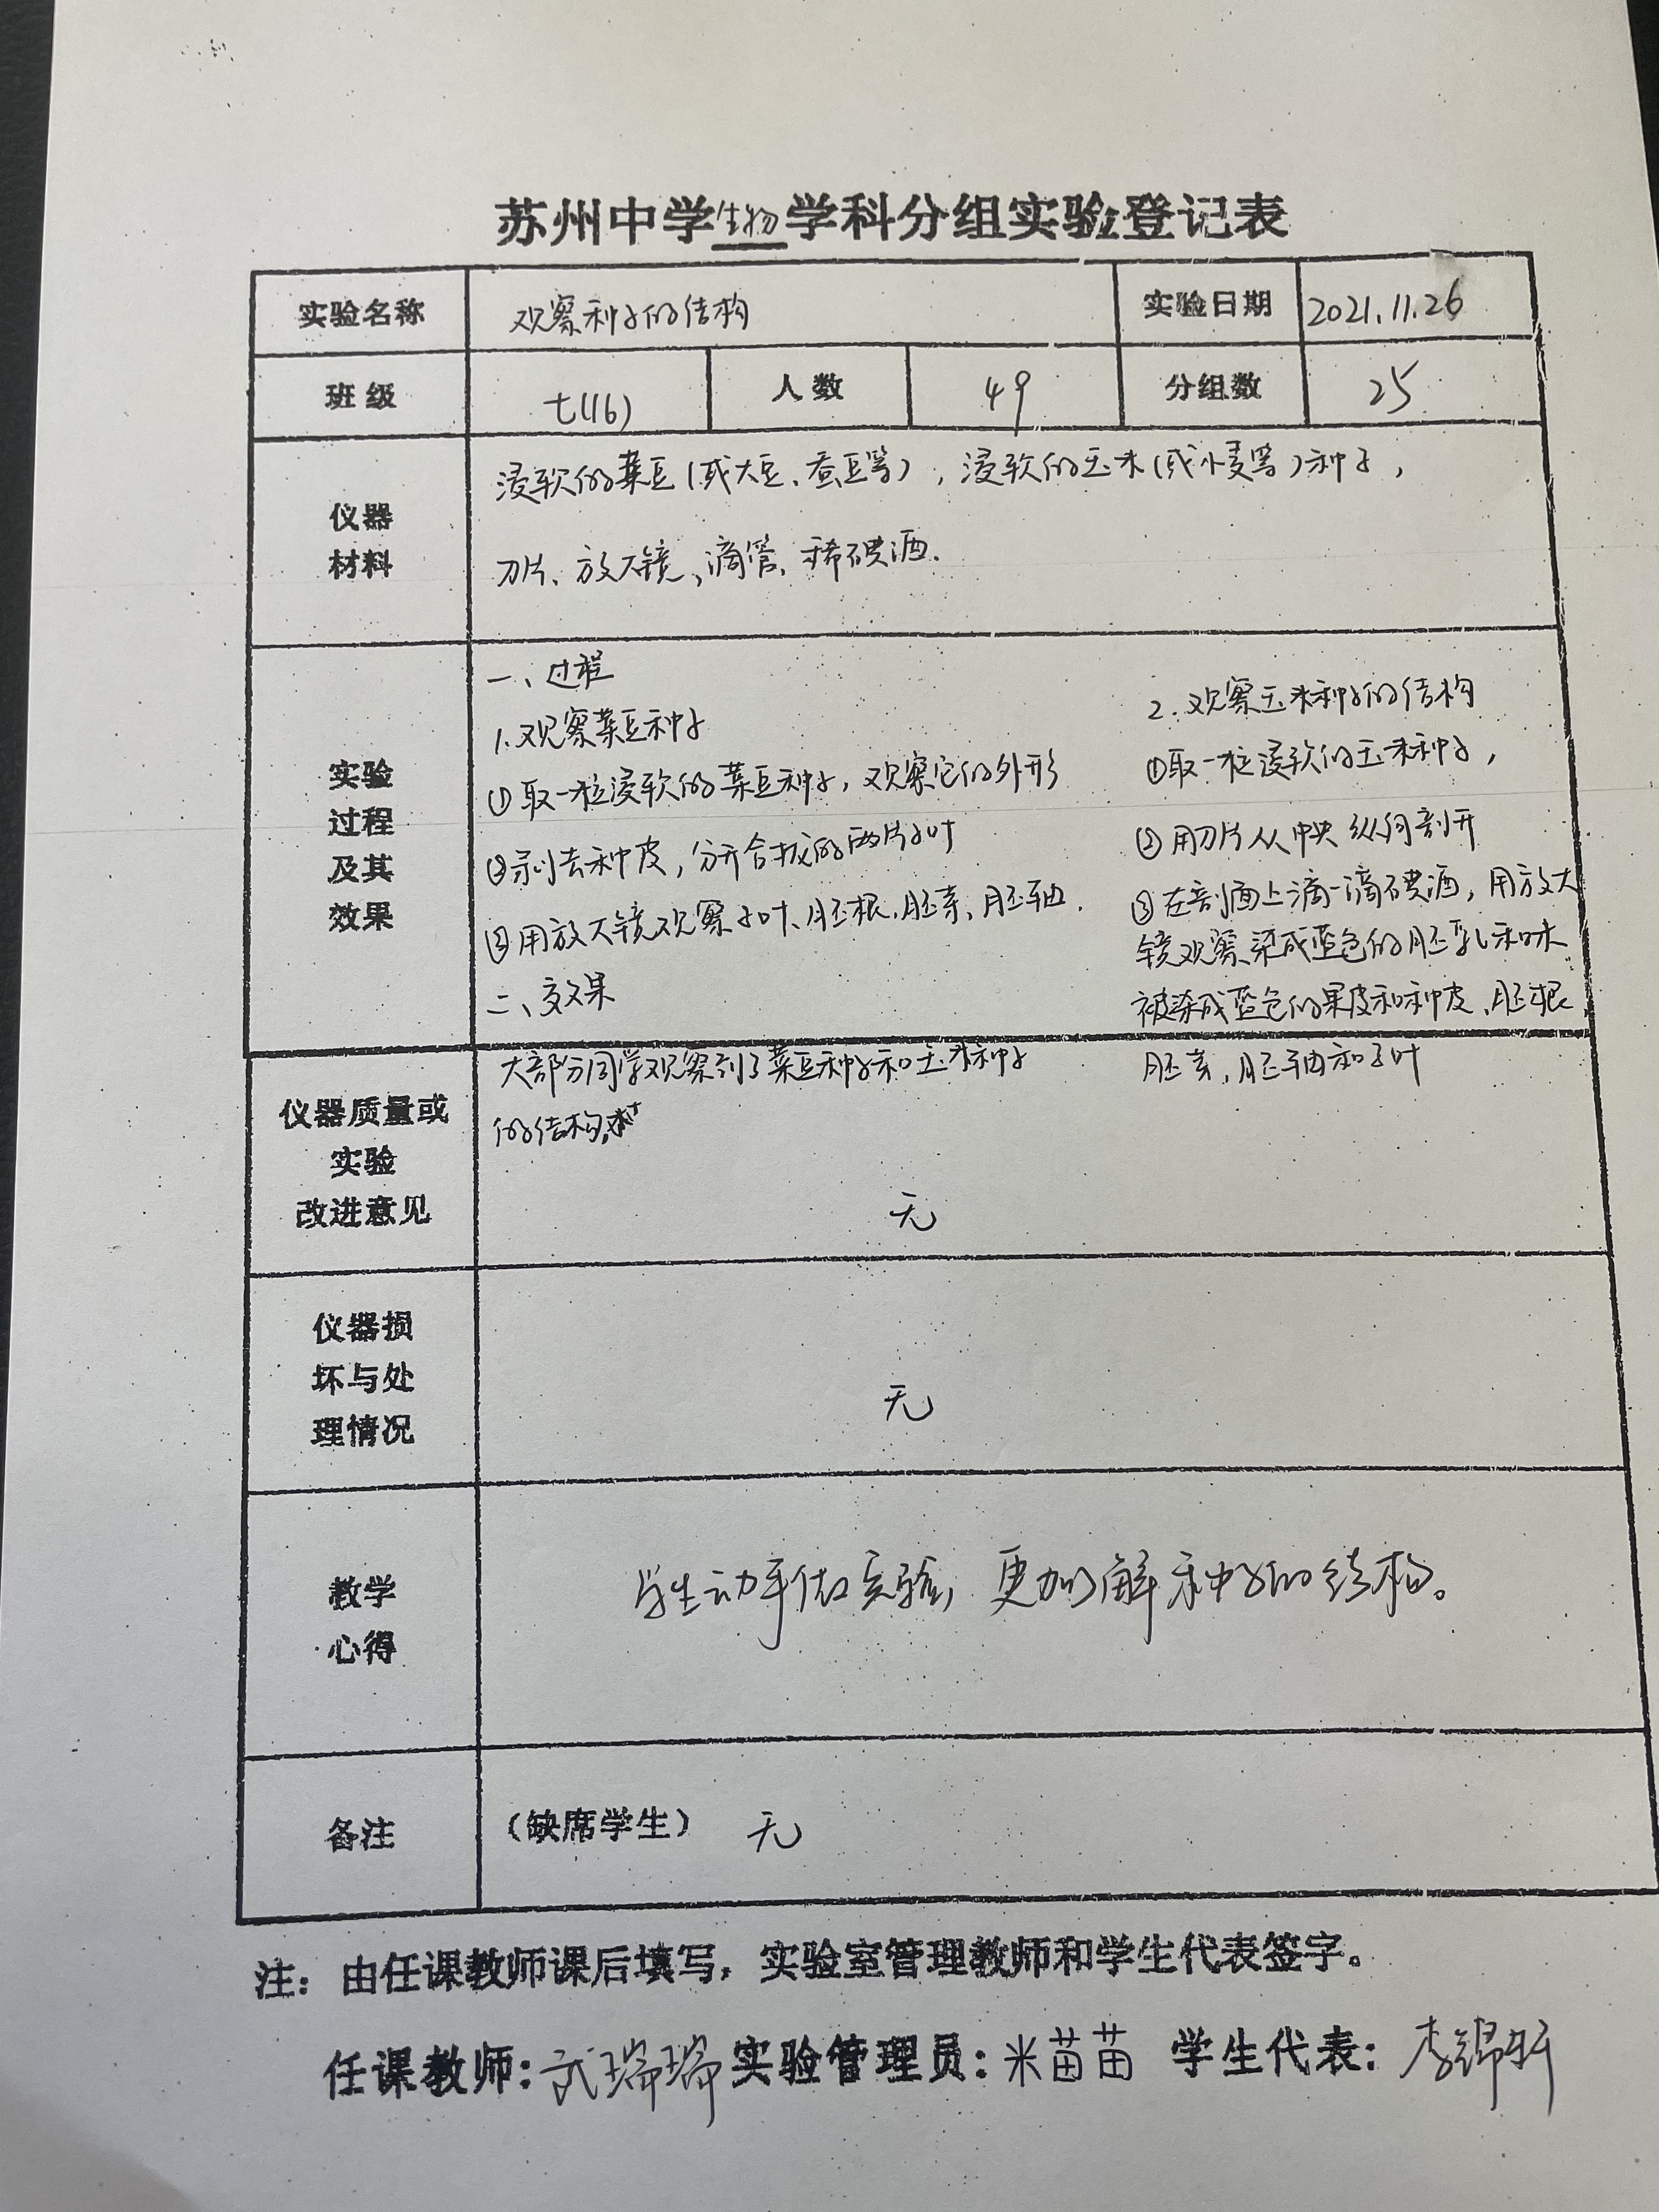 苏州中学生物学科分组实验登记表
实验名称 观察种子的结构 实验日期 2021.11.26
班级 七(16) 人数 49 分组数 25
仪器
材料
浸软的菜豆(或大豆、蚕豆等),浸软的玉米(或小麦等)种子,
刀片、放大镜、滴管、稀碘酒.
实验
过程
及其
效果
一、过程
1.观察菜豆种子
①取一粒浸软的菜豆种子,观察它的外形
②剥去种皮,分开合拢的两片子叶
③用放大镜观察子叶、胚根、胚芽、胚轴.
二、效果
大部分同学观察到了菜豆种子和玉米种子
的结构.
2.观察玉米种子的结构
①取一粒浸软的玉米种子,
②用刀片从中央纵向剖开
③在剖面上滴一滴碘酒,用放大
镜观察染成蓝色的胚乳和未
被染成蓝色的果皮和种皮、胚根、
胚芽,胚轴和子叶
仪器质量或
实验
改进意见
无
仪器损
坏与处
理情况
无
教学
心得
学生动手做实验,更加了解种子的结构。
备注 (缺席学生) 无
注:由任课教师课后填写,实验室管理教师和学生代表签字。
任课教师:武瑞瑞 实验管理员:米苗苗 学生代表:李锦昕